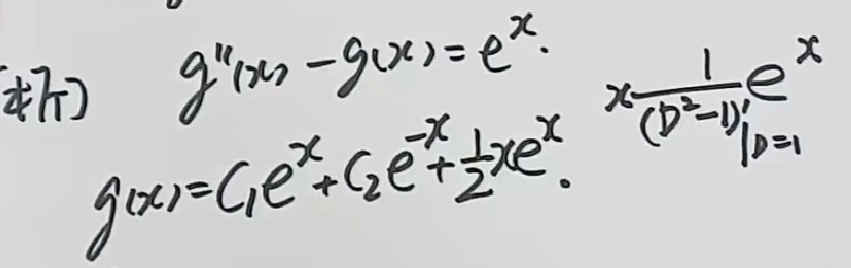 g''(x) - g(x) = e^x.
x \frac{1}{(D^2-1)'|_{D=1}} e^x
g(x) = C_1 e^x + C_2 e^{-x} + \frac{1}{2} x e^x.